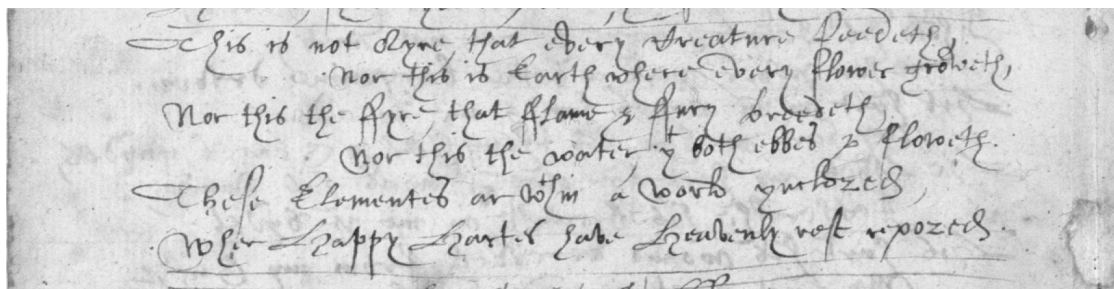 This is not Ayre, that every Creature feedeth,
Nor this is Earth where every flower groweth,
Nor this the ffyre, that fflame & ffury breedeth,
Nor this the water, yt both ebbes & floweth.
These Elementes ar wthin a world ynclozed,
Wher Happy Hartes have Heavenly rest repozed.